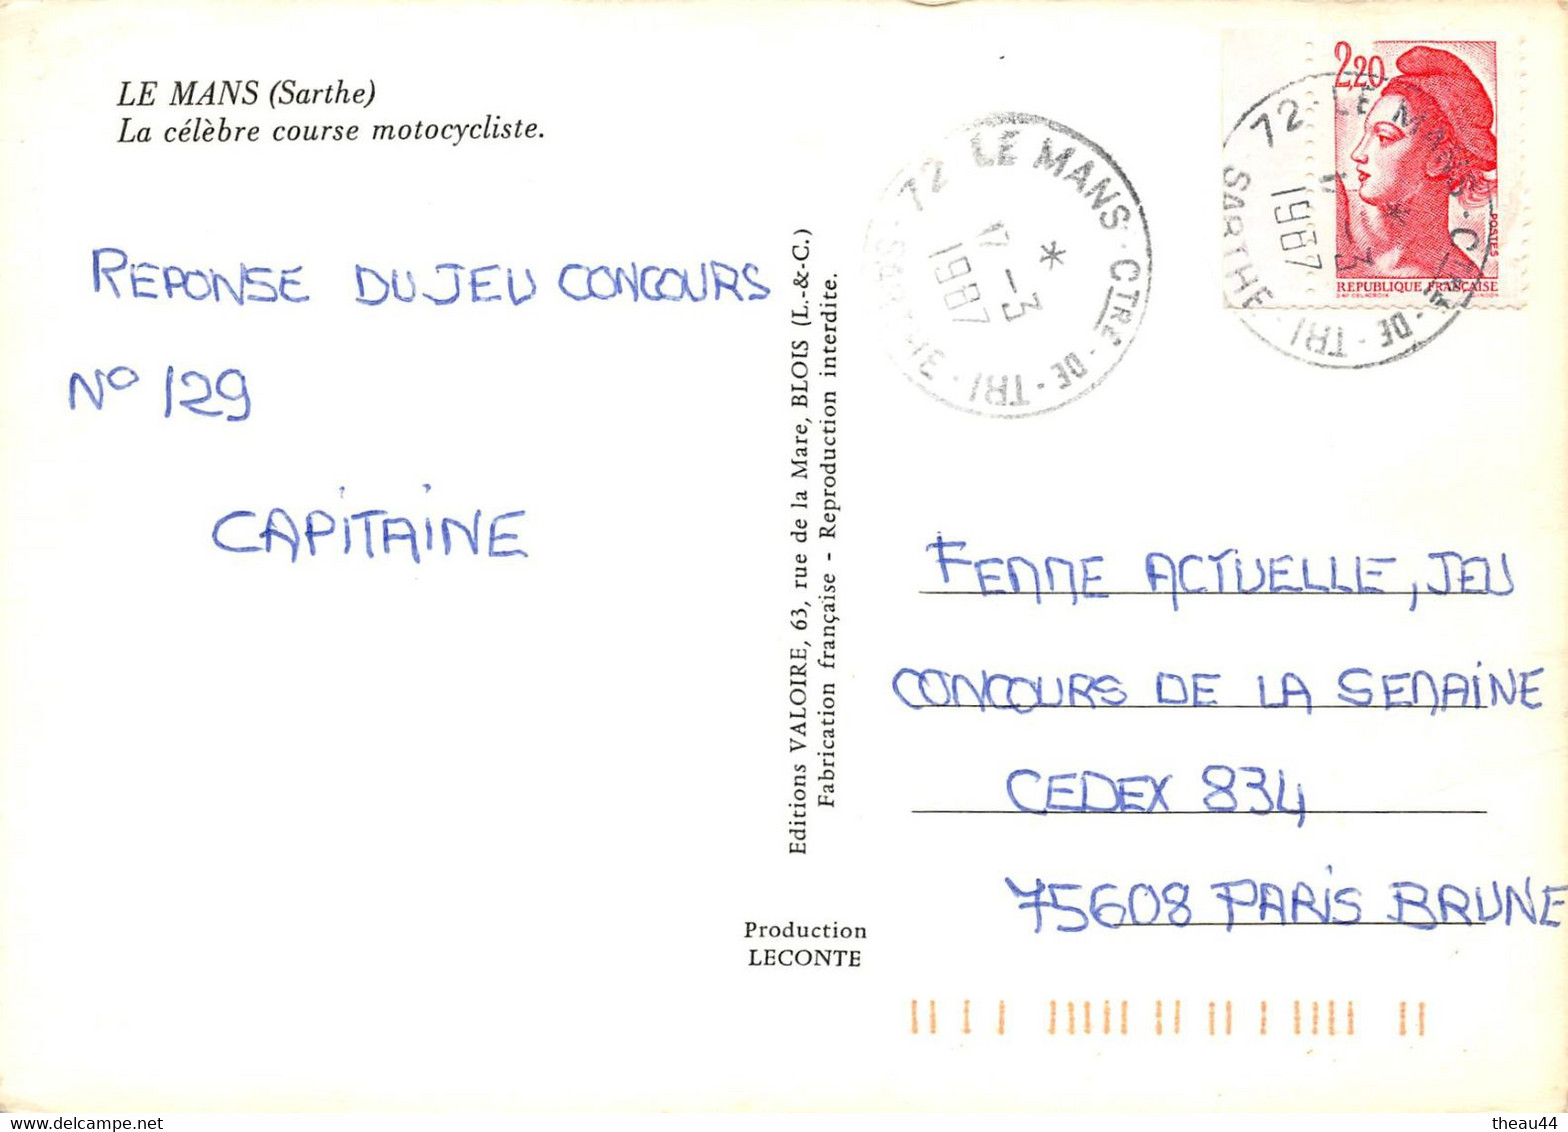 LE MANS (Sarthe)
La célèbre course motocycliste.
REPONSE DU JEU CONCOURS
N° 129
CAPITAINE
Editions VALOIRE, 63, rue de la Mare, BLOIS (L.-&-C.)
Fabrication française - Reproduction interdite.
Production
LECONTE
72 LE MANS · CTRE - DE - TRI · SARTHE
-3
1987
*
2,20
POSTES
REPUBLIQUE FRANÇAISE
72 · LE MANS · CTRE - DE - TRI · SARTHE
-3
1987
*
FEMME ACTUELLE, JEU
CONCOURS DE LA SEMAINE
CEDEX 834
75608 PARIS BRUNE
theau44